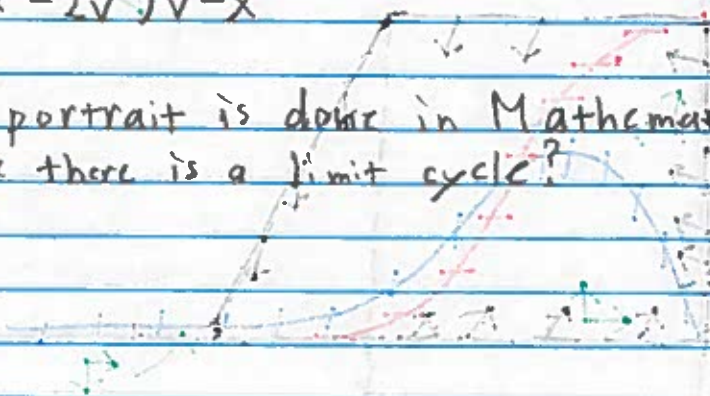 - 2v²)v - x
portrait is done in Mathema
there is a limit cycle?